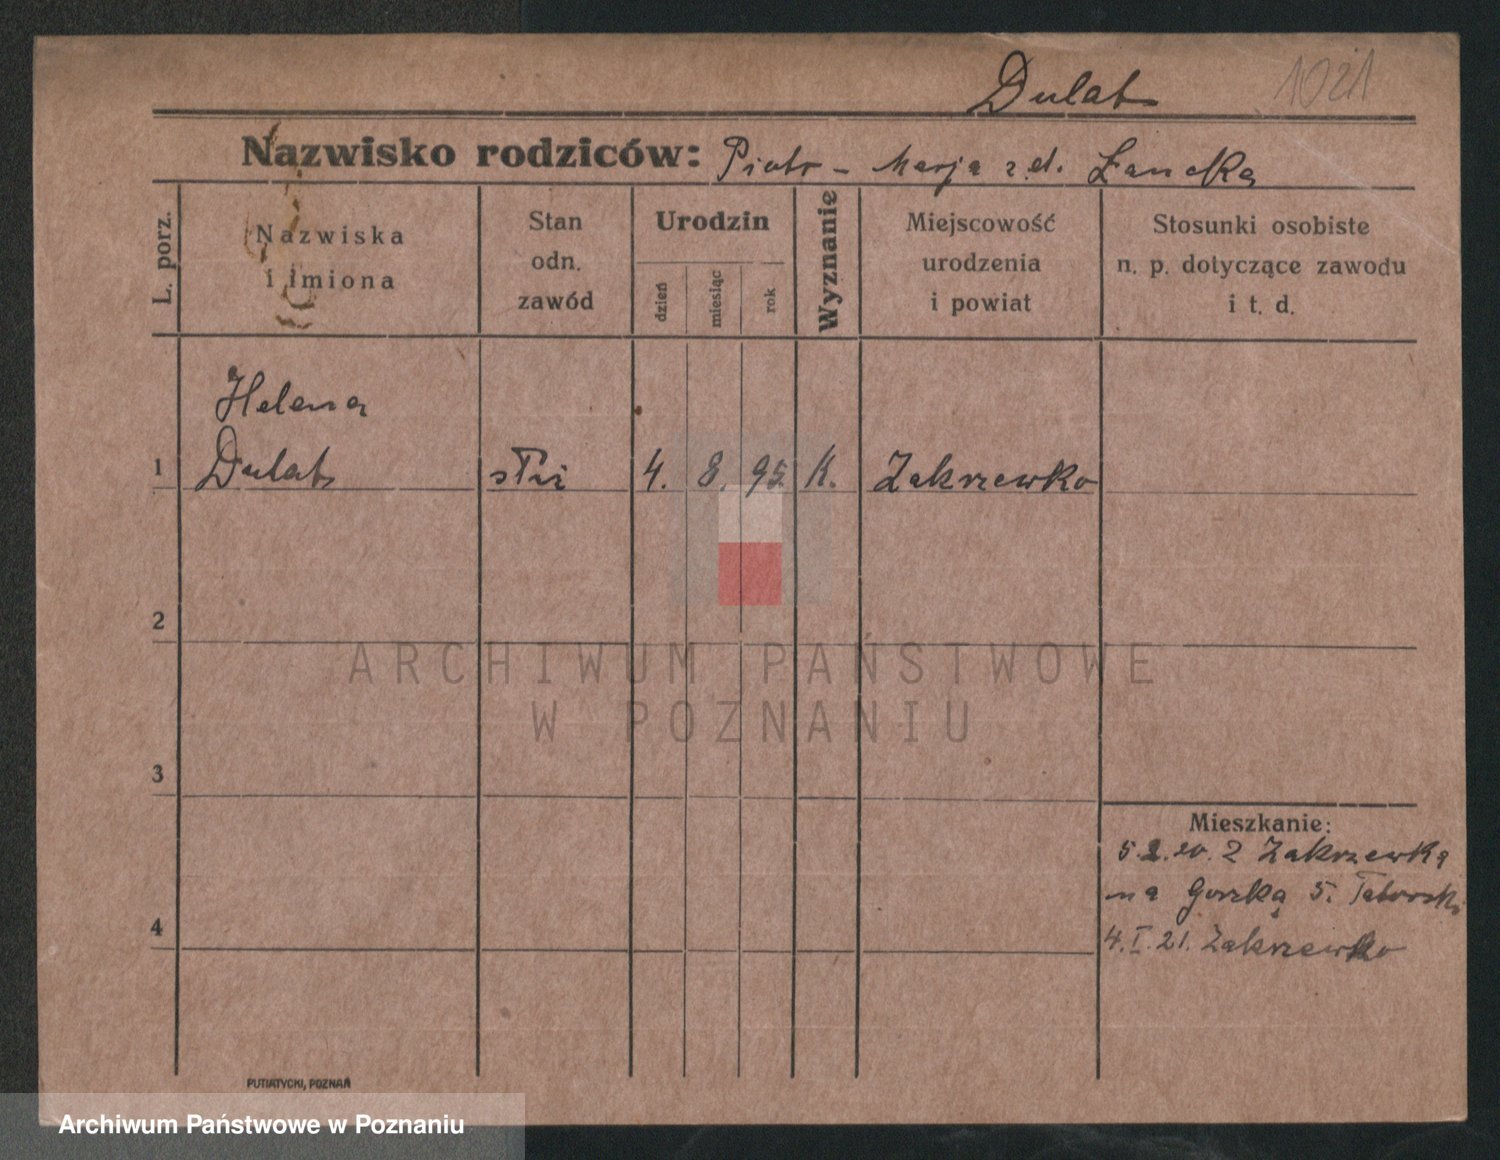 Dulat 1021
Nazwisko rodziców: Piotr – Marja z d. Łancka
L. porz.
Nazwiska
i imiona
Stan
odn.
zawód
Urodzin
dzień
miesiąc
rok
Wyznanie
Miejscowość
urodzenia
i powiat
Stosunki osobiste
n. p. dotyczące zawodu
i t. d.
Helena
1 Dulat służ 4. 8. 95. K. Zakrzewko
2
ARCHIWUM PAŃSTWOWE
W POZNANIU
3
Mieszkanie:
5.2.20. Z Zakrzewka
na Gorzką 5. Taborski
4
4.I.21. Zakrzewko
PUTIATYCKI, POZNAŃ
Archiwum Państwowe w Poznaniu